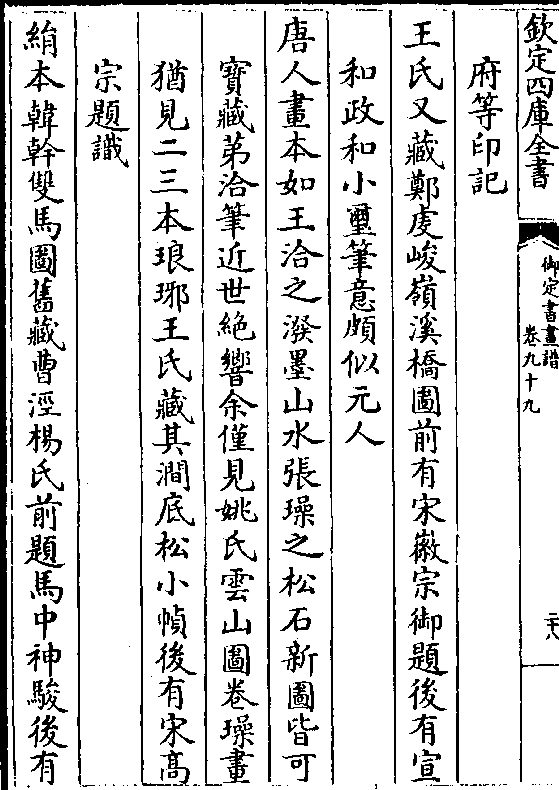 欽定四庫全書
御定書畫譜
卷九十九
二十八
府等印記
王氏又藏鄭虔峻嶺溪橋圖前有宋徽宗御題後有宣
和政和小璽筆意頗似元人
唐人畫本如王洽之潑墨山水張璪之松石新圖皆可
寳藏第洽筆近世絶響余僅見姚氏雲山圖卷璪畫
猶見二三本琅琊王氏藏其澗底松小幀後有宋髙
宗題識
絹本韓幹雙馬圖舊藏曹涇楊氏前題馬中神駿後有